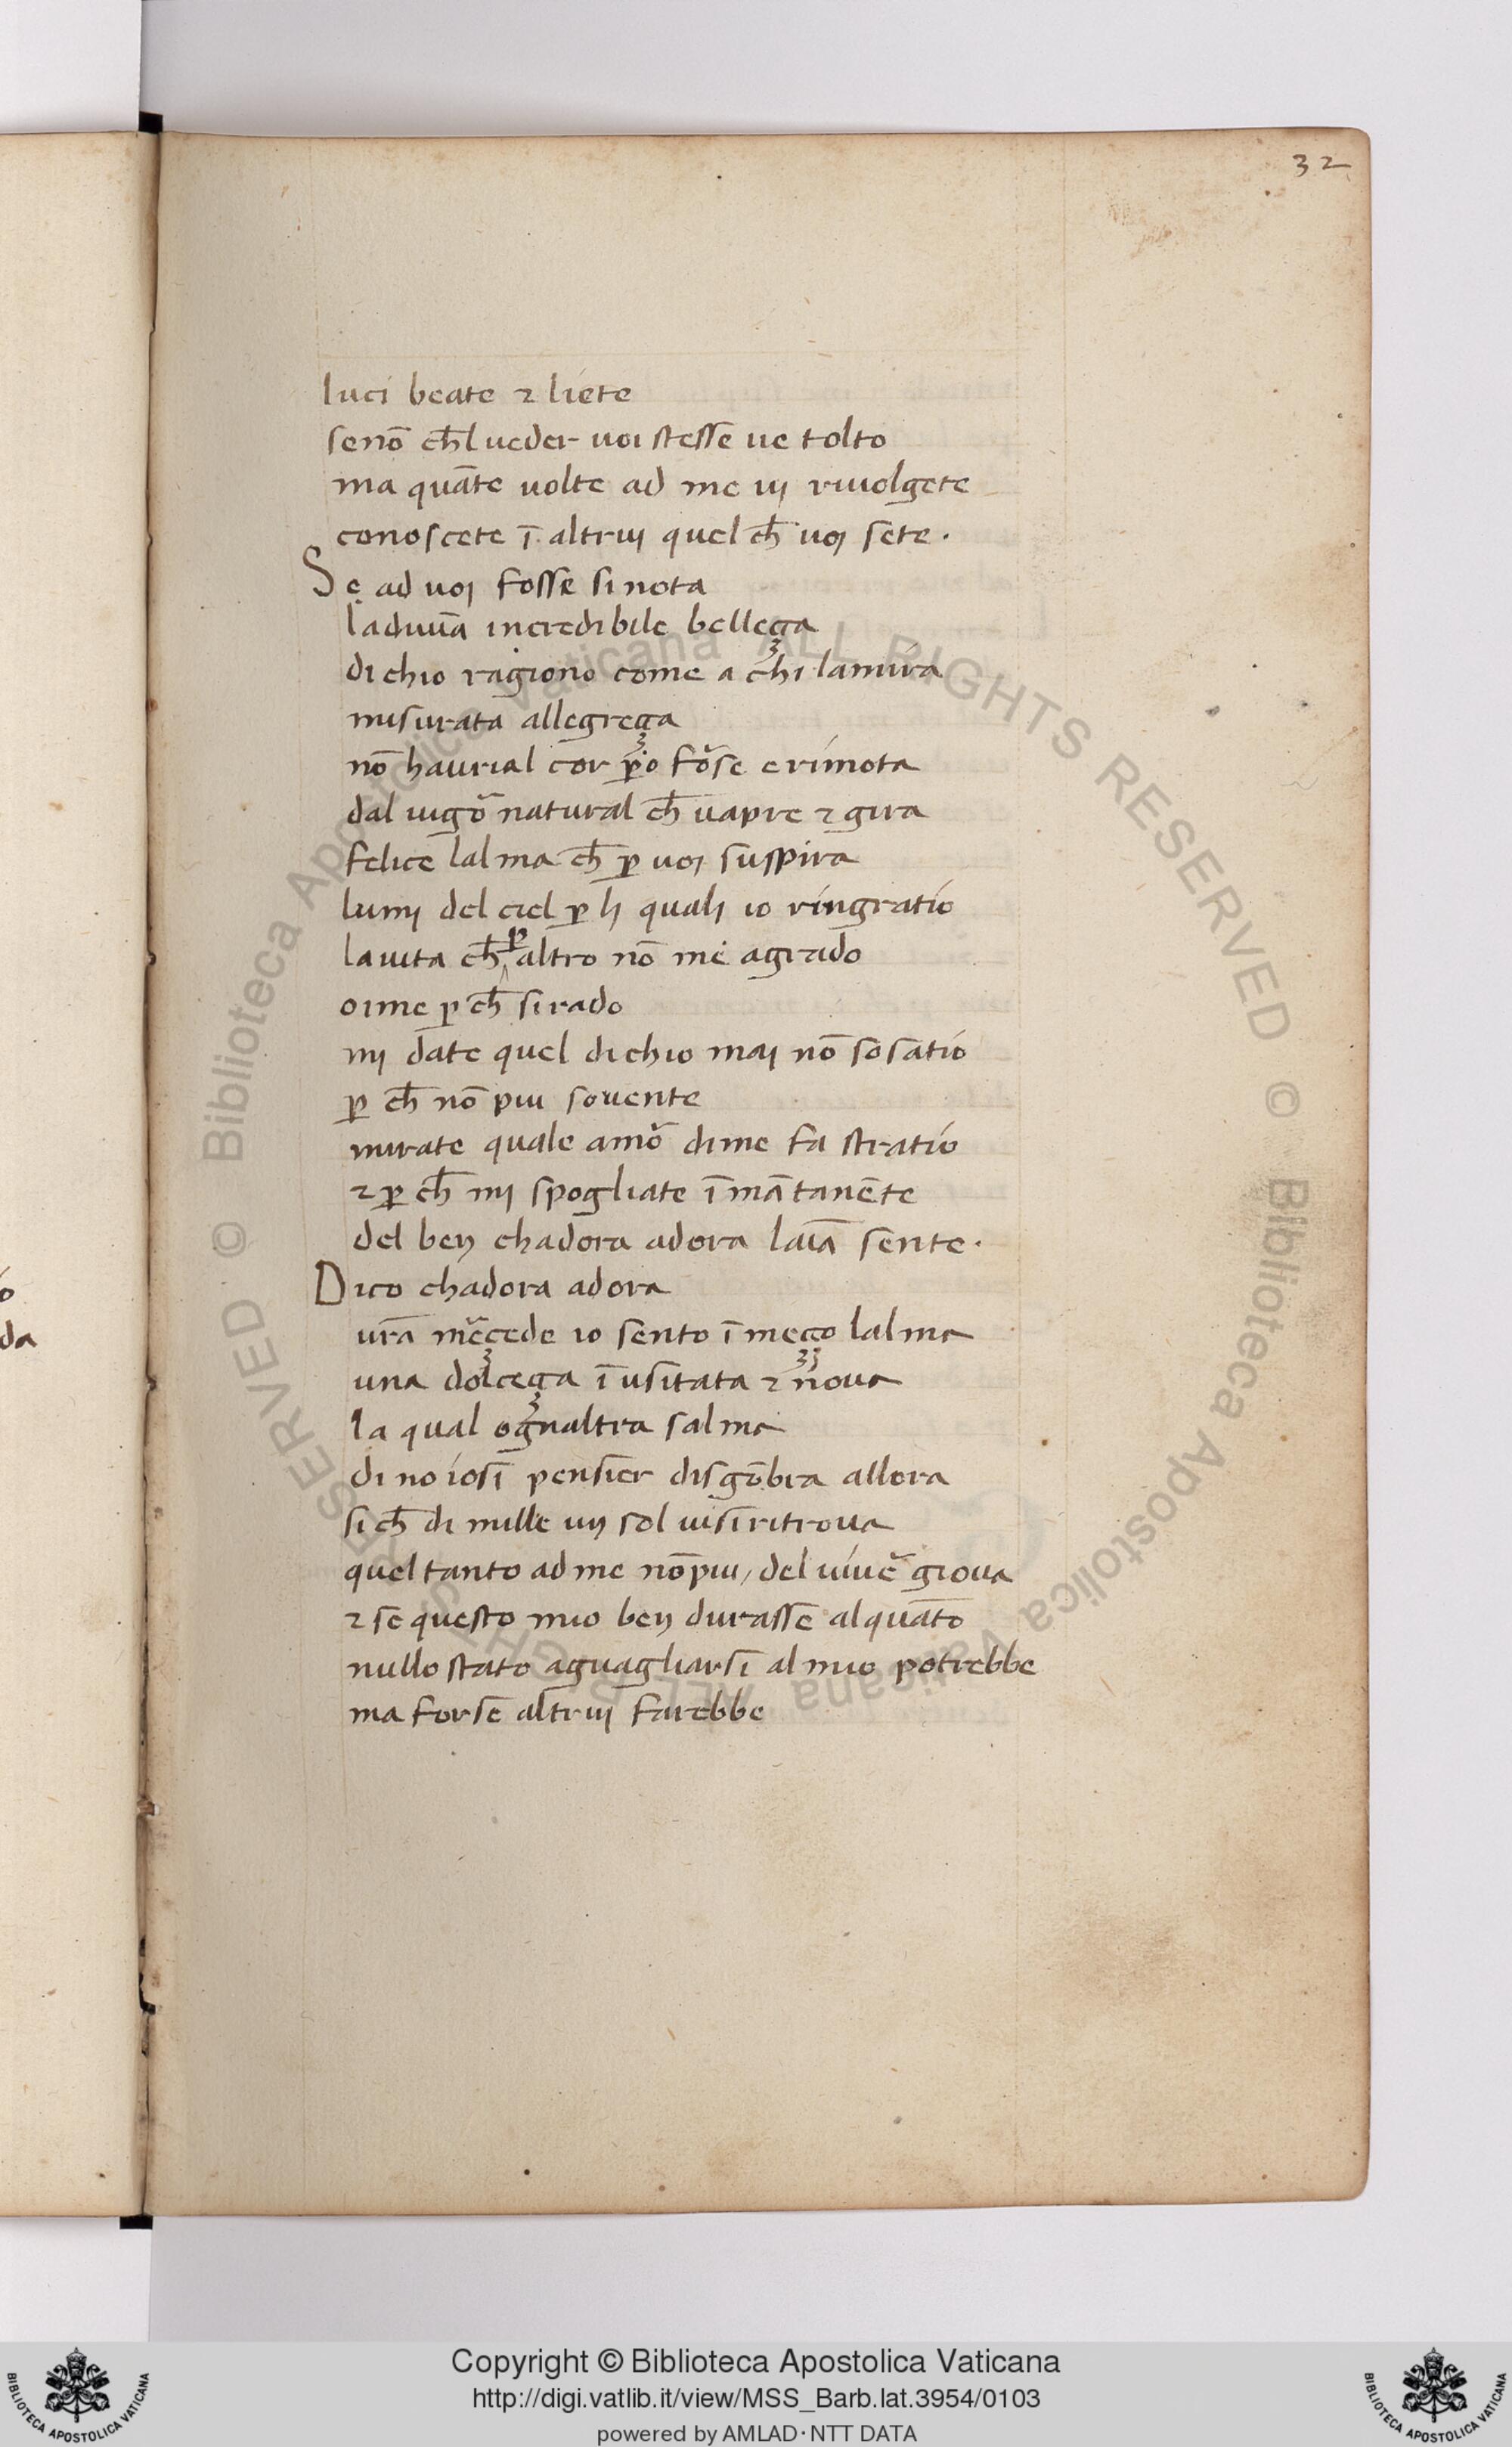 32
luci beate ⁊ liete
senō ch̄l ueder uoi stesse ue tolto
ma quāte uolte ad me uj riuolgete
conoscete ī altruj quel ch̄ uoj sete.
Se ad uoj fosse si nota
la diuīa incredibile belleça
di chio ragiono come a chi lamira
misurata allegreça
nō hauria l cor ꝑo fo᷑se e rimota
dal uigo᷑ natural ch̄ uapre ⁊ gira
felice lalma ch̄ ꝑ uoj suspira
lumj del ciel ꝑ lj qualj io ringratio
la uita ch̄ ꝑ altro nō me agrado
oime ꝑ ch̄ si rado
mj date quel di chio maj nō so satio
ꝑ ch̄ nō piu souente
mirate quale amo᷑ di me fa stratio
⁊ ꝑ ch̄ mj spogliate ī mātanēte
del ben chadora adora laīa sente.
Dico chadora adora
ur̄a m᷑cede io sento ī meço lalma
una dolceça ī usitata ⁊ noua
la qual ognaltra salma
di noiosi pensier disgōbra allora
si ch̄ di mille un sol ui si ritroua
quel tanto ad me nō piu / del uiue᷑ gioua
⁊ se questo mio ben durasse alquāto
nullo stato aguagliarsi al mio potrebbe
ma forse altruj farebbe
o
da
© Biblioteca Apostolica Vaticana ALL RIGHTS RESERVED © Biblioteca Apostolica Vaticana ALL RIGHTS RESERVED
Copyright © Biblioteca Apostolica Vaticana
http://digi.vatlib.it/view/MSS_Barb.lat.3954/0103
powered by AMLAD·NTT DATA
BIBLIOTECA APOSTOLICA VATICANA
BIBLIOTECA APOSTOLICA VATICANA